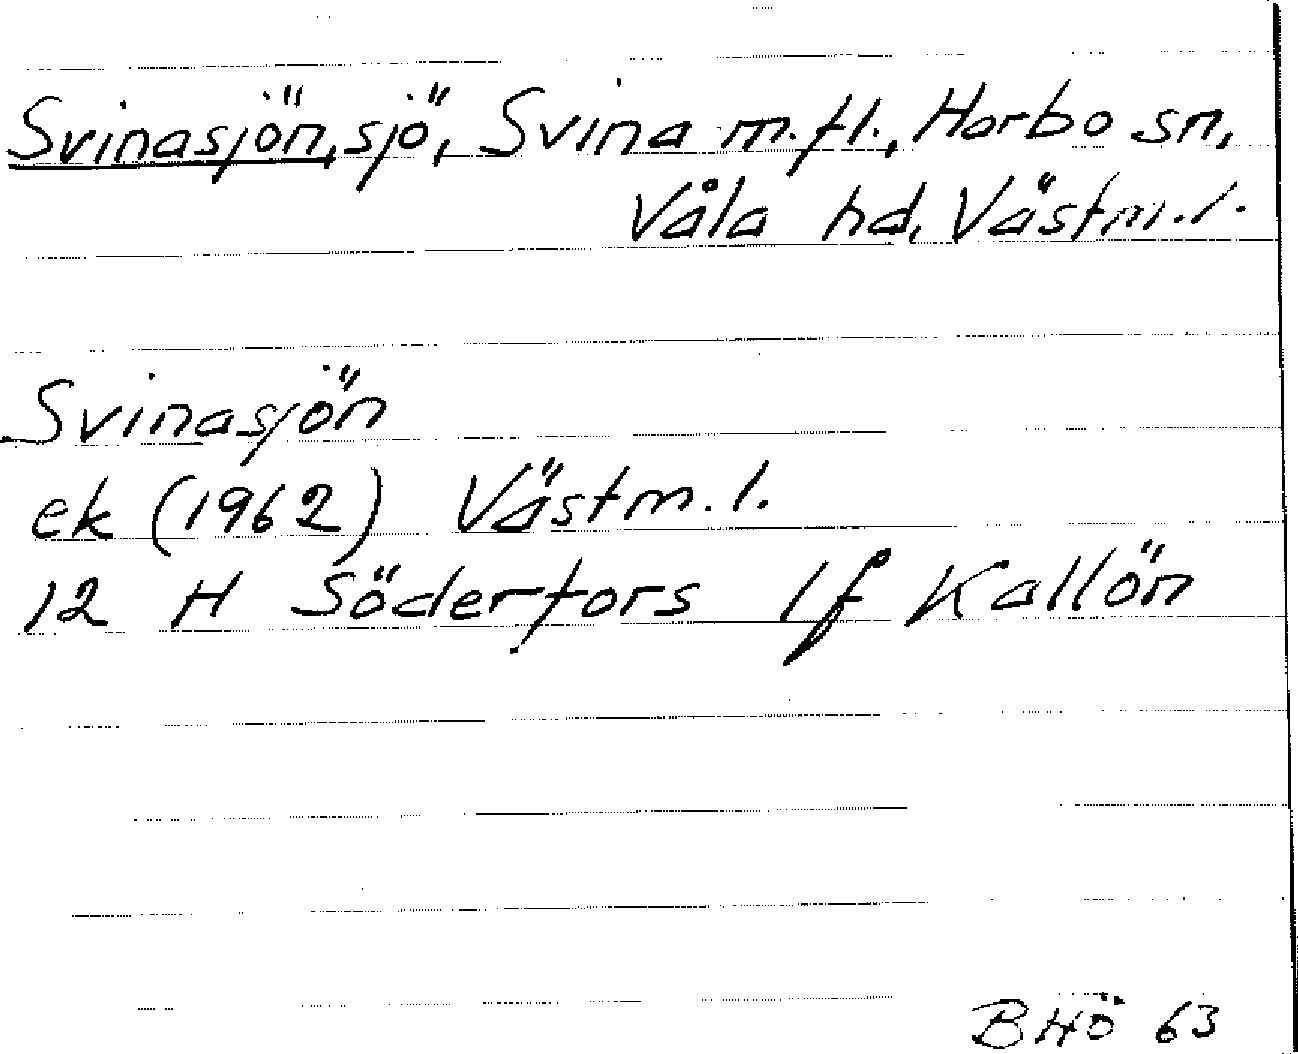 Svinasjön, sjö, Svina m.fl., Harbo sn,
Våla hd, Västm.l.
Svinasjön
ek (1962) Västm.l.
12 H Söderfors 1f Kallön
BHÖ 63